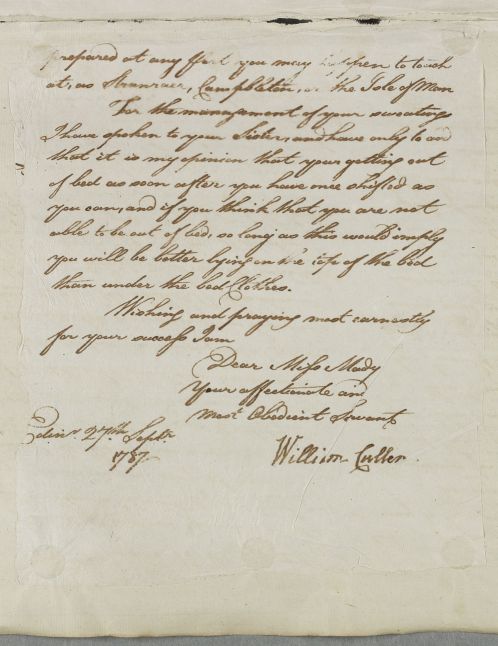 prepared at any Port you may happen to touch
at, as Stranraer, Campbleton, or the Isle of Man
For the management of your sweatings
I have spoken to your Sister, and have only to add
that it is my opinion that your getting out
of bed as soon after you have once shifted as
you can, and if you think that you are not
able to be out of bed, so long as this would imply
you will be better lying on the tope of the bed
than under the bed Clothes.
Wishing and praying most earnestly
for your success I am
Dear Miss Mady
Your affectionate and
Most Obedient Servant
Edinr. 27th Septr.
1787
William Cullen.